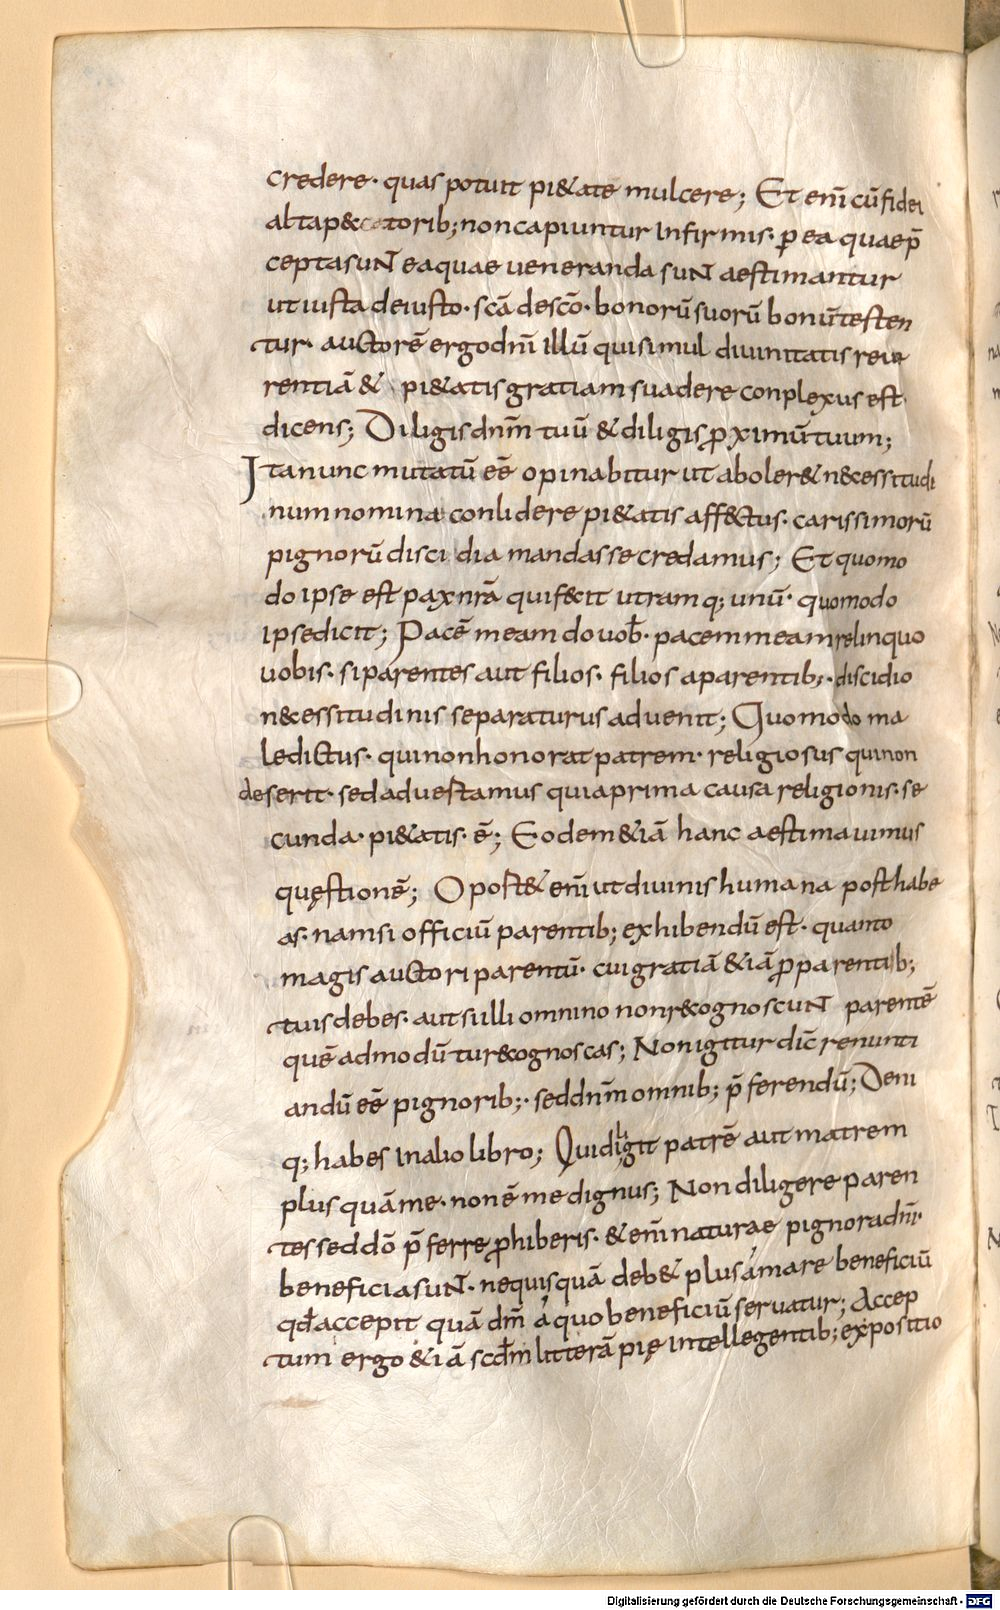 credere· quas potuit pi&ate mulcere; Et eni̅ cu̅ fidei
altap&catorib; non capiuntur Infirmis· p̱ ea quae p̅
cepta suNT ea quae ueneranda suNT aestimantur
ut iusta deiusto· sc̅a desc̅o· bonoru̅ suoru̅ bonu̅ testen
tur· auctore̅ ergo dn̅i illu̅ qui simul diuinitatis reue
rentia̅ & pi&atis gratiam suadere conplexus est·
dicens; Diligis dn̅m tuu̅ & diligis ꝓximu̅ tuum;
Ita nunc mutatu̅ ee̅ opinabitur ut aboler& n&cessitudi
num nomina conlidere pi&atis aff&ctus· carissimoru̅
pignoru̅ discidia mandasse credamus; Et quomo
do ipse est pax nr̅a quif&cit utramq; unu̅· quomodo
ipse dicit; Pace̅ meam do uob̅· pacem meam relinquo
uobis· si parentes aut filios· filios aparentib;· discidio
n&cessitudinis separaturus aduenit; Quomodo ma
ledictus· qui non honorat patrem· religiosus qui non
deserit· sed aduestamus quia prima causa religionis· se
cunda· pi&atis· e̅; Eodem &ia̅ hanc aestimauimus
quęstione̅; Opost& eni̅ ut diuinis humana posthabe
as· nam si officiu̅ parentib; exhibendu̅ est· quanto
magis auctori parentu̅· cui gratia̅ &ia̅ ꝓ parentib;
tuis debes· aut si illi omnino non r&cognoscuNT parente̅
que̅ admodu̅ tu r&cognoscas; Non igitur dic̅ renunti
andu̅ ee̅ pignorib;· sed dn̅m omnib; p̅ferendu̅; Deni
q; habes In alio libro; Qui diligit patre̅ aut matrem
plus qua̅ me· non e̅ me dignus; Non diligere paren
tes sed do̅ p̅ferre ꝓhiberis· & eni̅ naturae pignora dn̅i·
beneficia suNT· ne quisqua̅ deb& plus amare beneficiu̅
qd̅ accepit qua̅ dm̅ a quo beneficiu̅ seruatur; Accep
tum ergo &ia̅ scd̅m littera̅ pię intellegentib; expositio
Digitalisierung gefördert durch die Deutsche Forschungsgemeinschaft - DFG